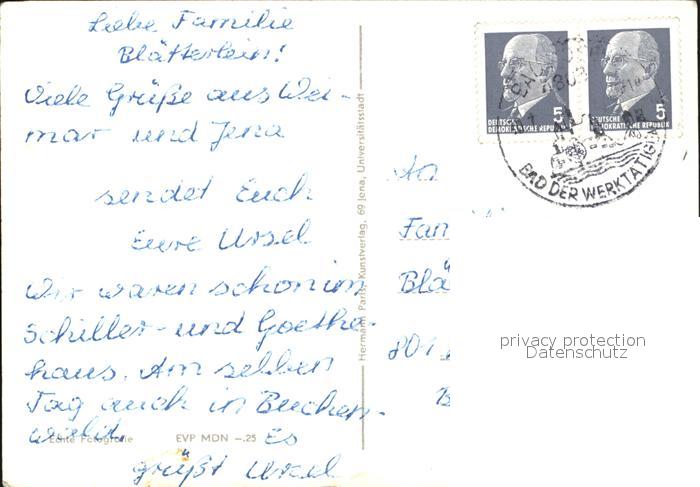 Liebe Familie
Blätterlein!
Viele Grüße aus Wei-
mar und Jena
sendet Euch
Eure Ursel
Wir waren schon im
Schiller- und Goethe-
haus. Am selben
Tag auch in Buchen-
wald. Es
grüßt Ursel
Echte Fotografie EVP MDN -.25
Hermann Paris, Kunstverlag, 69 Jena, Universitätsstadt
DEUTSCHE
DEMOKRATISCHE REPUBLIK
5
DEUTSCHE
DEMOKRATISCHE REPUBLIK
5
BAD DER WERKTÄTIGEN
An
Fam
Blä
801
privacy protection
Datenschutz